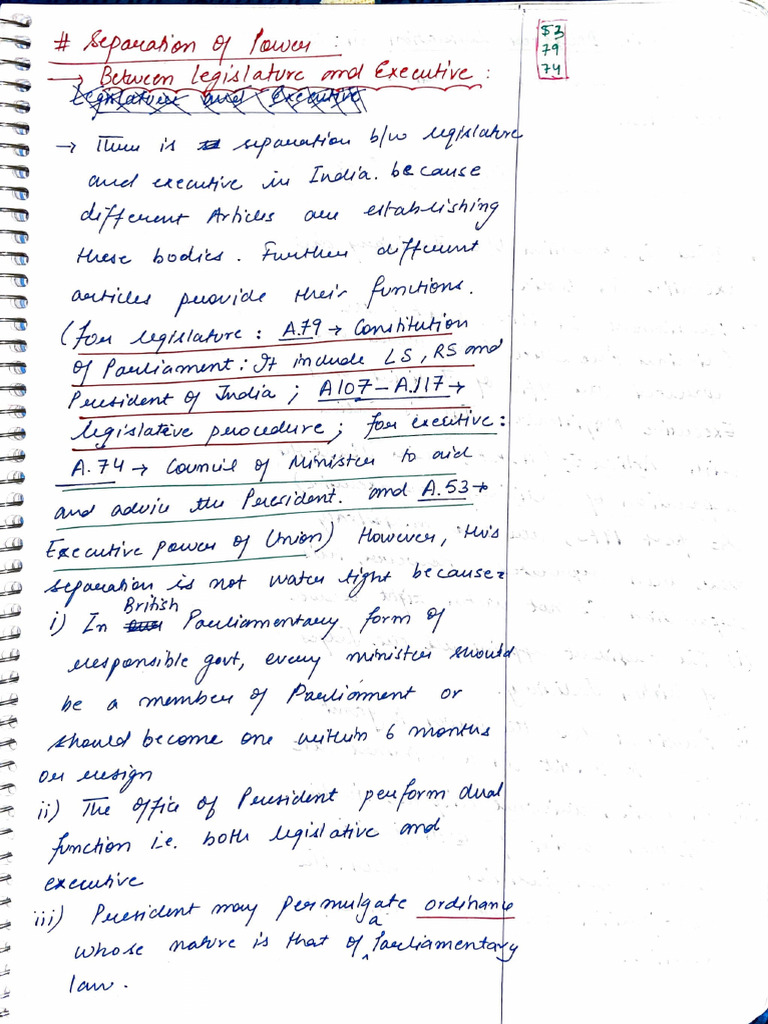 # Separation of Power :
53
79
74
→ Between legislature and Executive :
Legislature and Executive
→ There is separation b/w legislature
and executive in India. because
different Articles are establishing
these bodies. Further different
articles provide their functions.
(for legislature : A.79 → Constitution
of Parliament : It include LS, RS and
President of India ; A107 – A.117 →
legislative procedure ; for executive :
A.74 → Council of Minister to aid
and advice the President. and A.53 →
Executive power of Union) However, this
separation is not water tight because :
i) In British Parliamentary form of
responsible govt, every minister should
be a member of Parliament or
should become one within 6 months
or resign
ii) The office of President perform dual
function i.e. both legislative and
executive
iii) President may permulgate ordinance
whose nature is that of a Parliamentary
law.